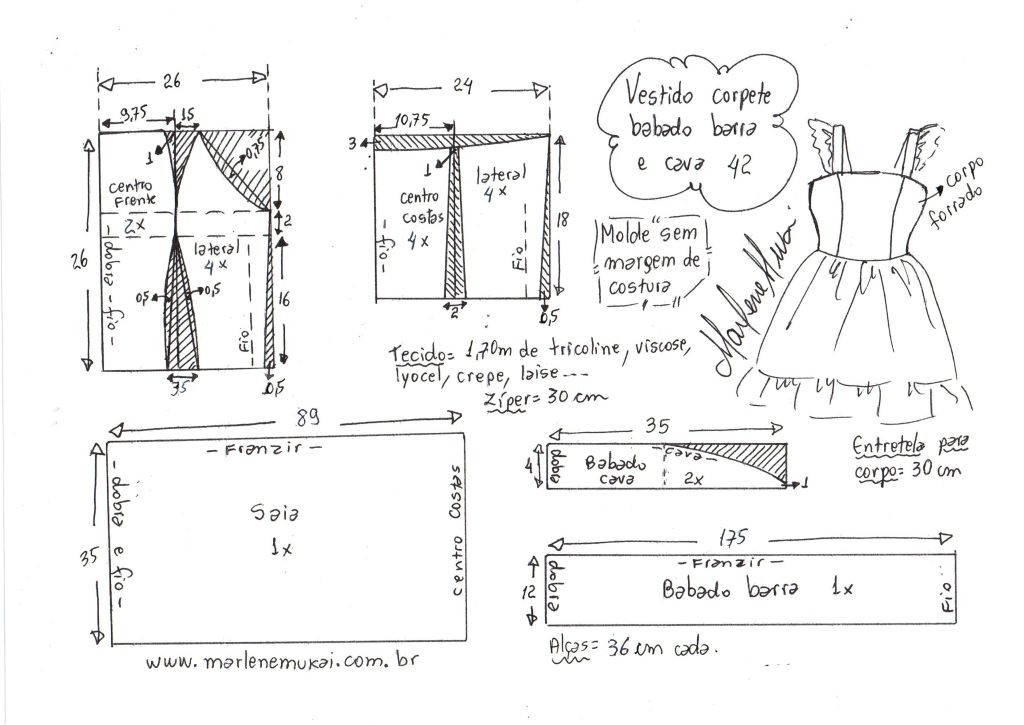 26
9,75
15
1
0,75
8
centro
Frente
2x
2
lateral
4x
26
-dobra-fio-
0,5
0,5
16
Fio
3,5
0,5
24
10,75
3
1
lateral
4x
centro
costas
4x
-fio-
Fio
18
2
0,5
Vestido corpete
babado barra
e cava 42
Molde sem
margem de
costura
corpo
forrado
Marlene Mukai
Tecido= 1,70m de tricoline, viscose,
lyocel, crepe, laise---
Zíper= 30 cm
89
-Franzir-
-dobra e fio-
Saia
1x
35
centro costas
www.marlenemukai.com.br
35
4
dobra
Babado
cava
-cava-
2x
1
Entretela para
corpo= 30 cm
175
-Franzir-
12
dobra
Babado barra 1x
Fio
Alças= 36 cm cada.